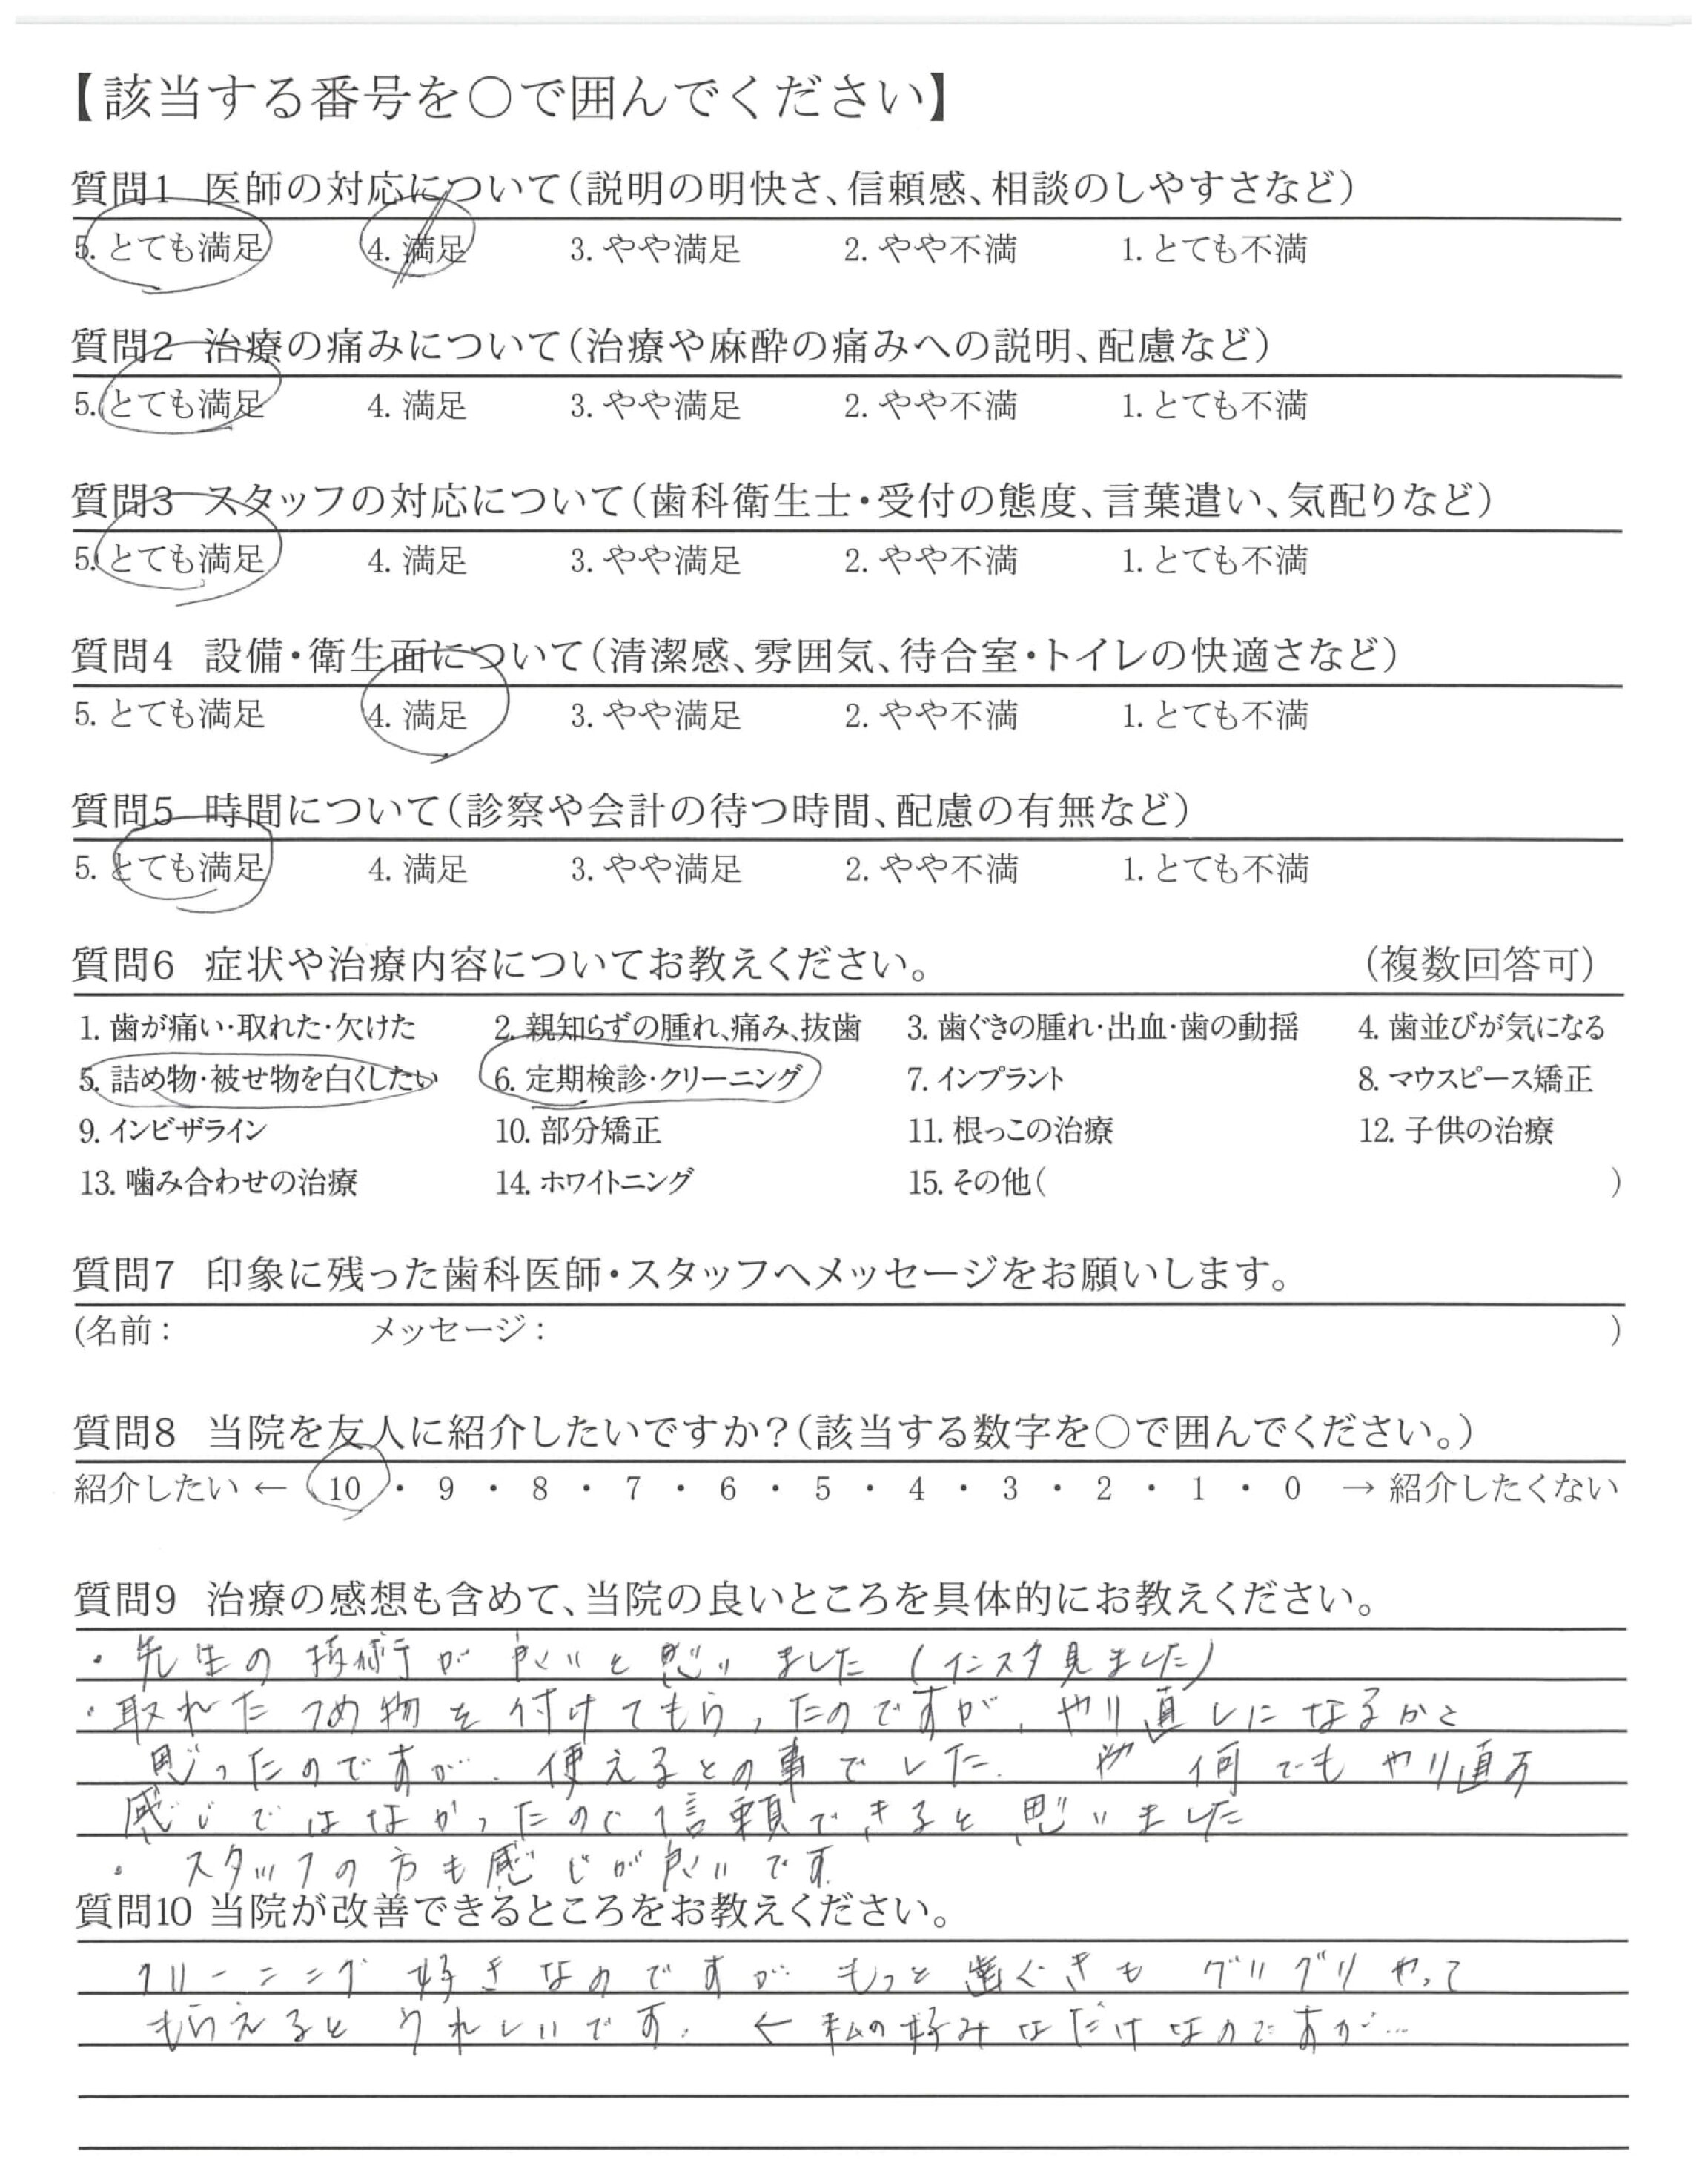 【該当する番号を○で囲んでください】
質問1 医師の対応について(説明の明快さ、信頼感、相談のしやすさなど)
5. とても満足 4. 満足 3. やや満足 2. やや不満 1. とても不満
質問2 治療の痛みについて(治療や麻酔の痛みへの説明、配慮など)
5. とても満足 4. 満足 3. やや満足 2. やや不満 1. とても不満
質問3 スタッフの対応について(歯科衛生士・受付の態度、言葉遣い、気配りなど)
5. とても満足 4. 満足 3. やや満足 2. やや不満 1. とても不満
質問4 設備・衛生面について(清潔感、雰囲気、待合室・トイレの快適さなど)
5. とても満足 4. 満足 3. やや満足 2. やや不満 1. とても不満
質問5 時間について(診察や会計の待つ時間、配慮の有無など)
5. とても満足 4. 満足 3. やや満足 2. やや不満 1. とても不満
質問6 症状や治療内容についてお教えください。 (複数回答可)
1. 歯が痛い・取れた・欠けた 2. 親知らずの腫れ、痛み、抜歯 3. 歯ぐきの腫れ・出血・歯の動揺 4. 歯並びが気になる
5. 詰め物・被せ物を白くしたい 6. 定期検診・クリーニング 7. インプラント 8. マウスピース矯正
9. インビザライン 10. 部分矯正 11. 根っこの治療 12. 子供の治療
13. 噛み合わせの治療 14. ホワイトニング 15. その他( )
質問7 印象に残った歯科医師・スタッフへメッセージをお願いします。
(名前: メッセージ: )
質問8 当院を友人に紹介したいですか?(該当する数字を○で囲んでください。)
紹介したい ← 10 ・ 9 ・ 8 ・ 7 ・ 6 ・ 5 ・ 4 ・ 3 ・ 2 ・ 1 ・ 0 → 紹介したくない
質問9 治療の感想も含めて、当院の良いところを具体的にお教えください。
・先生の技術が良いと思いました(インスタ見ました)
・取れたつめ物を付けてもらったのですが、やり直しになるかと
思ったのですが、使えるとの事でした。 何でもやり直す
感じではなかったので信頼できると思いました
・スタッフの方も感じが良いです。
質問10 当院が改善できるところをお教えください。
クリーニング好きなのですがもっと歯ぐきもグリグリやって
もらえるとうれしいです。 ← 私の好みなだけなのですが…